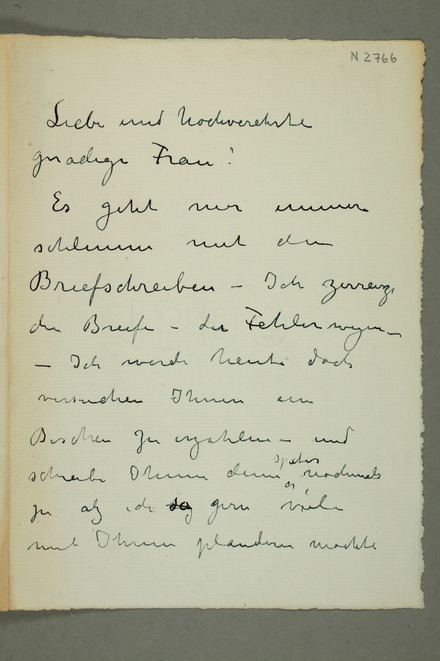 N 2766
Liebe und Hochverehrte
gnädige Frau!
Es geht mir immer
schlimm mit den
Briefschreiben – Ich zerreisse
die Briefe – der Fehler wegen –
– Ich werde heute doch
versuchen Ihnen ein
Bischen zu erzahlen – und
schreibe Ihnen dann später nochmals
ich gern viele
mit Ihnen plandern mochte